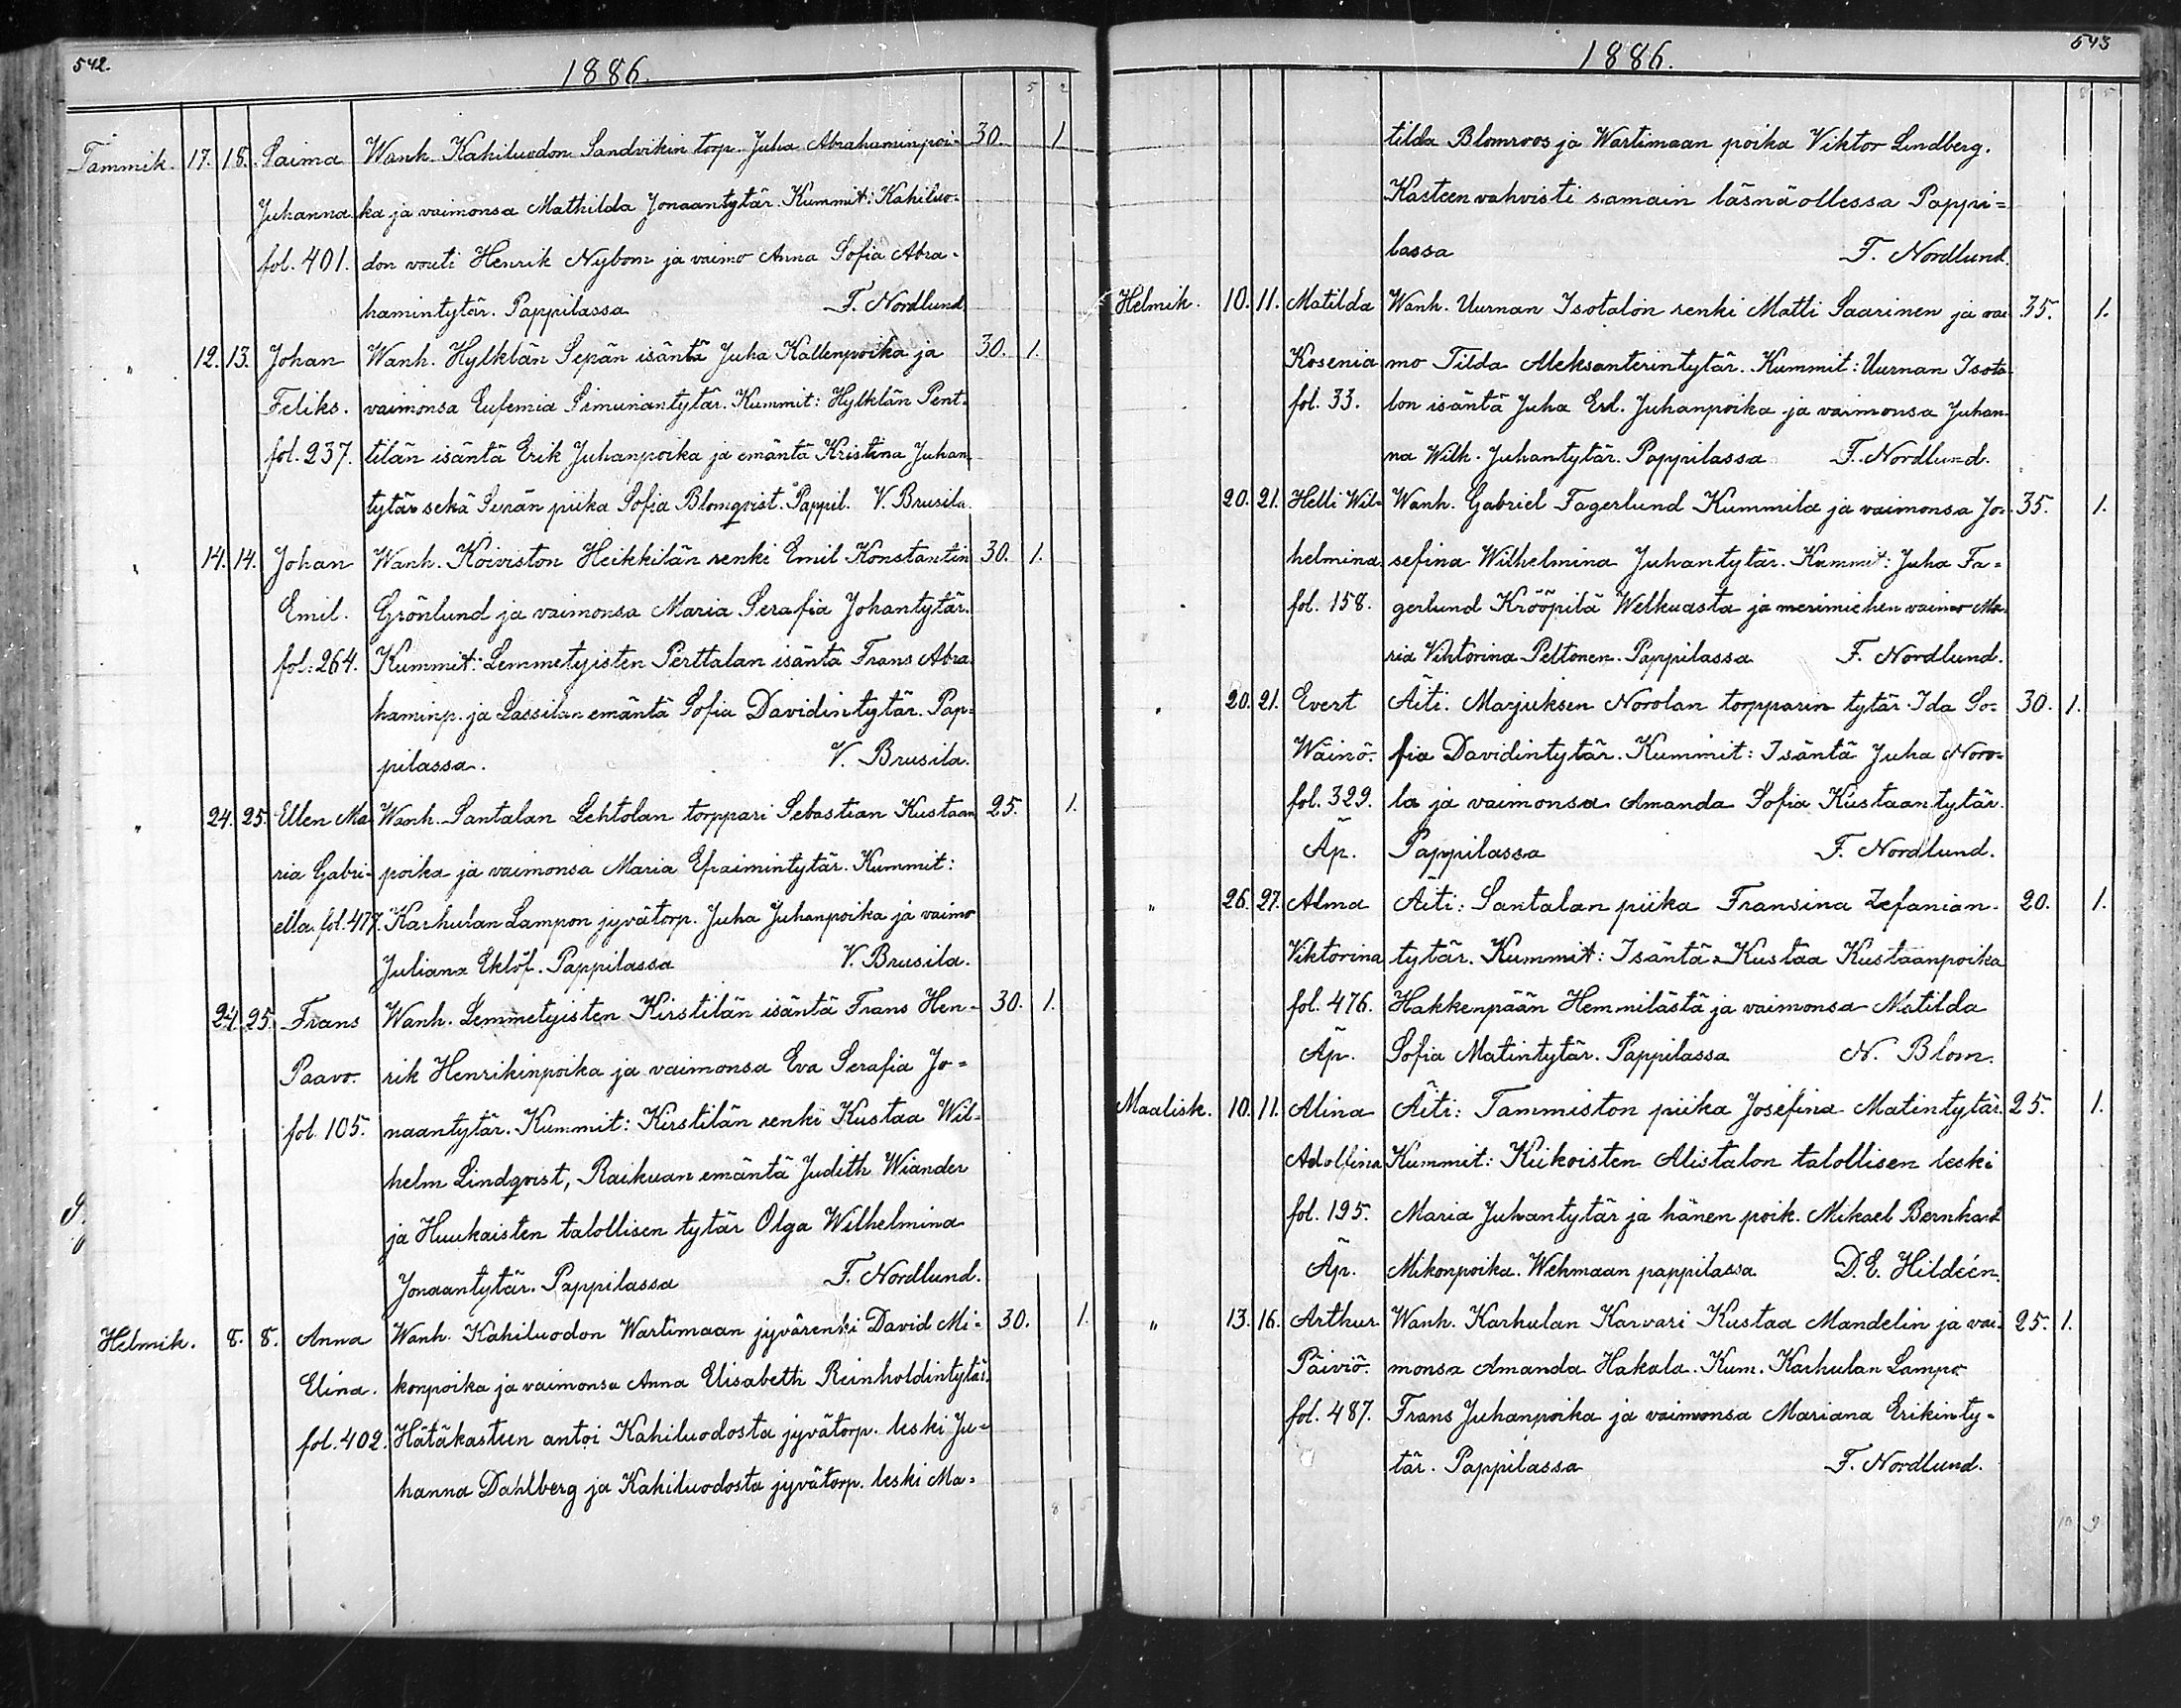 542.
1886.
5 2
Tammik. 17. 18. Saima Wanh. Kahiluodon Sandvikin torp. Juha Abrahaminpoi- 30. 1
Juhanna. ka ja vaimonsa Mathilda Jonaantytär. Kummit: Kahiluo-
fol. 401. don vouti Henrik Nybom ja vaimo Anna Sofia Abra-
hamintytär. Pappilassa F. Nordlund
" 12. 13. Johan Wanh. Hylklän Sepän isäntä Juha Kallenpoika ja 30. 1.
Feliks. vaimonsa Eufemia Simunantytär. Kummit: Hylklän Pent-
fol. 237. tilän isäntä Erik Juhanpoika ja emäntä Kristina Juhan
tytär sekä Sepän piika Sofia Blomqvist. Pappil. V. Brusila.
" 14. 14. Johan Wanh. Koiviston Heikkilän renki Emil Konstantin 30. 1.
Emil. Grönlund ja vaimonsa Maria Serafia Johantytär.
fol: 264. Kummit: Lemmetyisten Perttalan isäntä Frans Abra
haminp. ja Lassilan emäntä Sofia Davidintytär. Pap=
pilassa. V. Brusila.
" 24. 25. Ellen Ma Wanh. Santalan Lehtolan torppari Sebastian Kustaan 25. 1.
ria Gabri- poika ja vaimonsa Maria Efraimintytär. Kummit:
ella. fol. 477. Karhulan Lampon jyvätorp. Juha Juhanpoika ja vaimo
Juliana Eklöf. Pappilassa V. Brusila.
24. 25. Frans Wanh. Lemmetyisten Kirstilän isäntä Frans Hen- 30. 1.
Paavo. rik Henrikinpoika ja vaimonsa Eva Serafia Jo=
fol. 105. naantytär. Kummit: Kirstilän renki Kustaa Wil-
helm Lindqvist, Raikuan emäntä Judith Wiander
ja Huukaisten talollisen tytär Olga Wilhelmina
Jonaantytär. Pappilassa F. Nordlund.
Helmik. 8. 8. Anna Wanh. Kahiluodon Wartimaan jyvärenki David Mi= 30. 1.
Elina. konpoika ja vaimonsa Anna Elisabeth Reinholdintytär.
fol. 402. Hätäkasteen antoi Kahiluodosta jyvätorp. leski Ju=
hanna Dahlberg ja Kahiluodosta jyvätorp. leski Ma=
8 5
543
1886.
8 5
tilda Blomroos ja Wartimaan poika Viktor Lindberg.
Kasteen vahvisti samain läsnäollessa Pappi=
lassa F. Nordlund.
Helmik. 10. 11. Matilda Wanh. Uurnan Isotalon renki Matti Saarinen ja vai 35. 1.
Kosenia mo Tilda Aleksanterintytär. Kummit: Uurnan Isota
fol. 33. lon isäntä Juha Erl. Juhanpoika ja vaimonsa Juhan
na Wilh. Juhantytär. Pappilassa F. Nordlund.
20. 21. Helli Wil= Wanh. Gabriel Fagerlund Kummila ja vaimonsa Jo- 35. 1.
helmina. sefina Wilhelmina Juhantytär. Kummit: Juha Fa=
fol. 158. gerlund Krööpilä Welkuasta ja merimiehen vaimo Ma
ria Viktorina Peltonen. Pappilassa F. Nordlund.
" 20. 21. Evert Äiti. Marjuksen Norolan torpparin tytär Ida So- 30. 1.
Wäinö. fia Davidintytär. Kummit: Isäntä Juha Noro=
fol. 329. la ja vaimonsa Amanda Sofia Kustaantytär.
Äp. Pappilassa F. Nordlund.
" 26. 27. Alma Äiti: Santalan piika Fransina Zefanian- 20. 1.
Viktorina tytär. Kummit: Isäntä Kustaa Kustaanpoika
fol. 476. Hakkenpään Hemmilästä ja vaimonsa Matilda
Äp. Sofia Matintytär. Pappilassa N. Blom.
Maalisk. 10. 11. Alina Äiti: Tammiston piika Josefina Matintytär. 25. 1.
Adolfina Kummit: Kiikoisten Alistalon talollisen leski
fol. 195. Maria Juhantytär ja hänen poik. Mikael Bernhard
Äp. Mikonpoika. Wehmaan pappilassa D. E. Hildeén.
" 13. 16. Arthur Wanh. Karhulan Karvari Kustaa Mandelin ja vai 25. 1.
Päiviö. monsa Amanda Hakala. Kum. Karhulan Lampo
fol. 487. Frans Juhanpoika ja vaimonsa Mariana Erikinty-
tär. Pappilassa F. Nordlund.
10 9